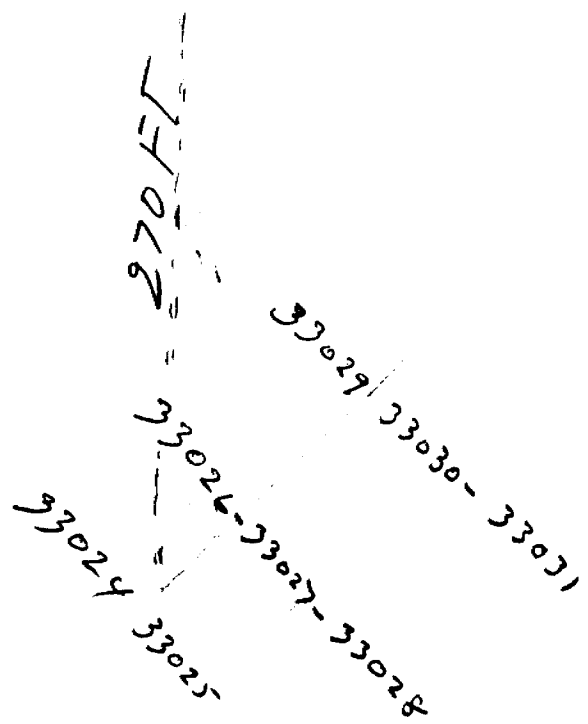 270 FT
33029 33030- 33031
33026-33027-33028
33024 33025